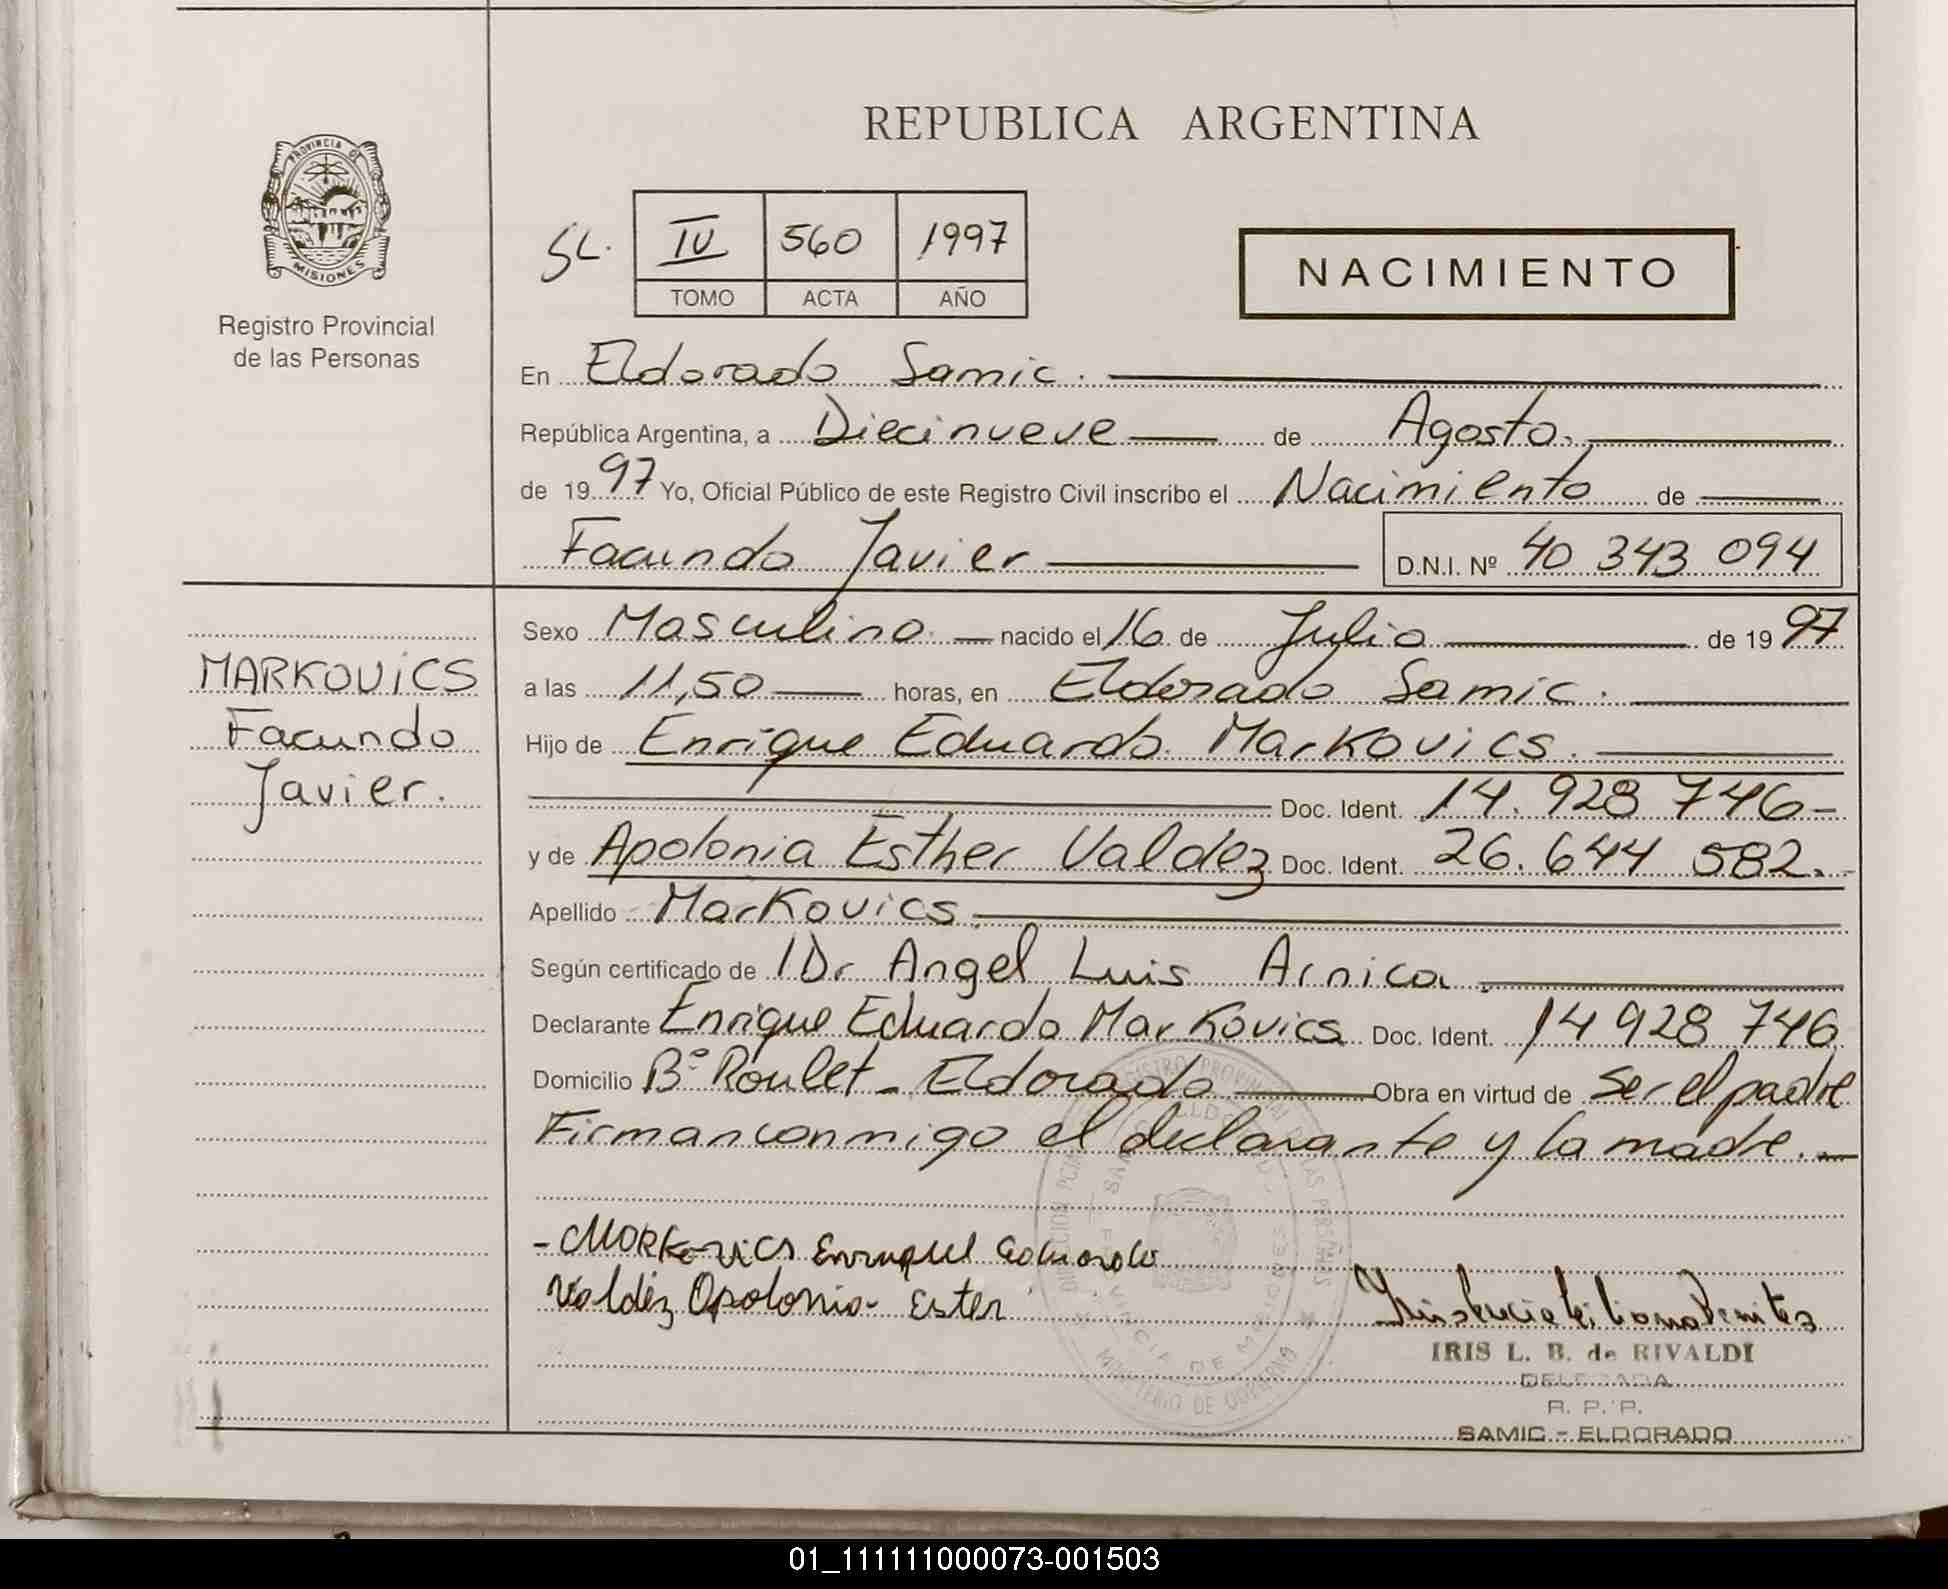 REPUBLICA ARGENTINA
PROVINCIA DE
MISIONES
Registro Provincial
de las Personas
SL. IV 560 1997
TOMO ACTA AÑO
NACIMIENTO
En Eldorado Samic.
República Argentina, a Diecinueve de Agosto.
de 1997 Yo, Oficial Público de este Registro Civil inscribo el Nacimiento de
Facundo Javier D.N.I. Nº 40 343 094
MARKOVICS
Facundo
Javier.
Sexo Masculino nacido el 16 de Julio de 1997
a las 11,50 horas, en Eldorado Samic.
Hijo de Enrique Eduardo Markovics.
Doc. Ident. 14.928 746-
y de Apolonia Esther Valdez Doc. Ident. 26.644 582.-
Apellido Markovics
Según certificado de Dr Angel Luis Arnica.
Declarante Enrique Eduardo Markovics Doc. Ident. 14 928 746
Domicilio Bº Roulet - Eldorado Obra en virtud de ser el padre
Firman conmigo el declarante y la madre.-
- Markovics Enrique Eduardo
Valdéz Apolonia Ester
IRIS L. B. de RIVALDI
DELEGADA
R. P. P.
SAMIC - ELDORADO
PROVINCIA DE MISIONES
MINISTERIO DE GOBIERNO
01_111111000073-001503